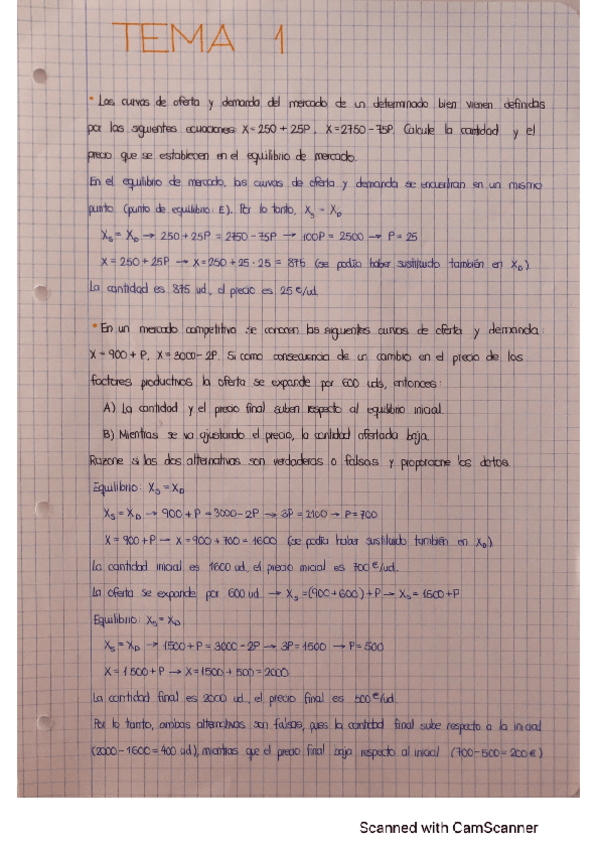 TEMA 1
• Las curvas de oferta y demanda del mercado de un determinado bien vienen definidas
por las siguientes ecuaciones: X=250+25P, X=2750-75P. Calcule la cantidad y el
precio que se establecen en el equilibrio de mercado.
En el equilibrio de mercado, las curvas de oferta y demanda se encuentran en un mismo
punto (punto de equilibrio: E). Por lo tanto, Xs = XD
Xs = XD → 250+25P = 2750-75P → 100P = 2500 → P = 25
X = 250+25P → X=250+25·25 = 875 (se podía haber sustituido también en XD)
La cantidad es 875 ud, el precio es 25€/ud.
• En un mercado competitivo se conocen las siguientes curvas de oferta y demanda:
X=900+P, X=3000-2P. Si como consecuencia de un cambio en el precio de los
factores productivos la oferta se expande por 600 uds, entonces:
A) La cantidad y el precio final suben respecto al equilibrio inicial.
B) Mientras se va ajustando el precio, la cantidad ofertada baja.
Razone si las dos alternativas son verdaderas o falsas y proporcione los datos.
Equilibrio: Xs = XD
Xs = XD → 900+P = 3000-2P → 3P = 2100 → P=700
X = 900+P → X = 900+700 = 1600 (se podía haber sustituido también en XD)
La cantidad inicial es 1600 ud, el precio inicial es 700€/ud.
La oferta se expande por 600 ud. → Xs = (900+600)+P → Xs = 1500+P
Equilibrio: Xs = XD
Xs = XD → 1500+P = 3000-2P → 3P=1500 → P=500
X = 1500+P → X=1500+500=2000
La cantidad final es 2000 ud, el precio final es 500€/ud.
Por lo tanto, ambas alternativas son falsas, pues la cantidad final sube respecto a la inicial
(2000-1600=400 ud), mientras que el precio final baja respecto al inicial (700-500=200€)
Scanned with CamScanner